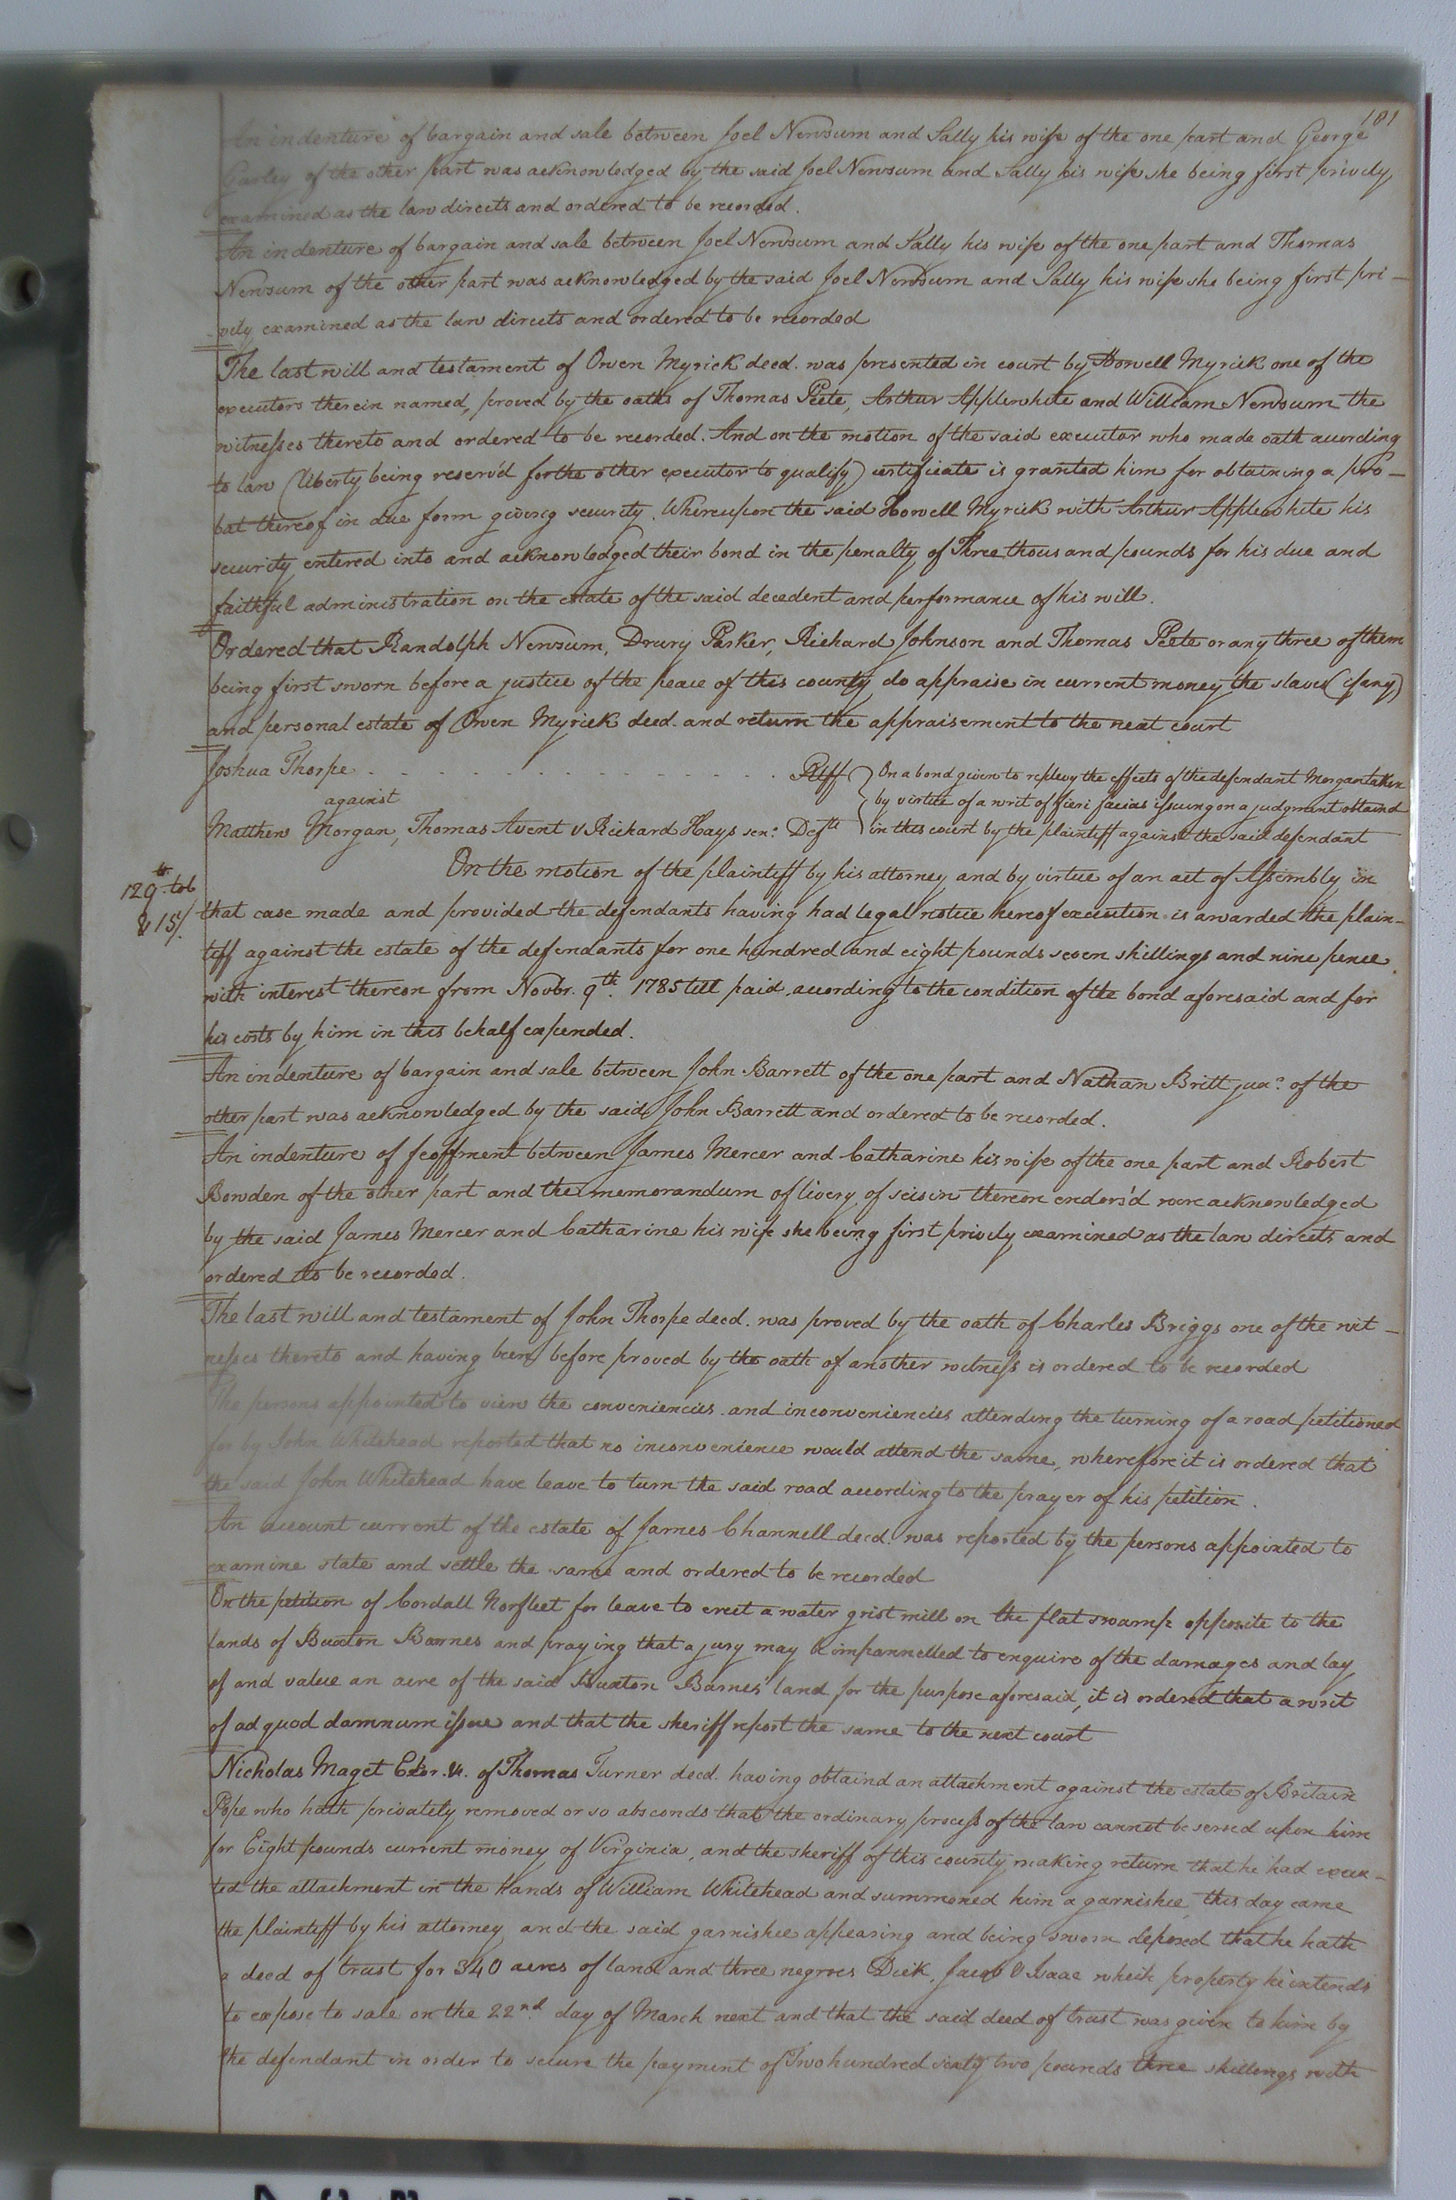 181
An indenture of bargain and sale between Joel Newsum and Sally his wife of the one part and George
Gurley of the other part was acknowledged by the said Joel Newsum and Sally his wife she being first privily
examined as the law directs and ordered to be recorded.
An indenture of bargain and sale between Joel Newsum and Sally his wife of the one part and Thomas
Newsum of the other part was acknowledged by the said Joel Newsum and Sally his wife she being first pri-
vily examined as the law directs and ordered to be recorded
The last will and testament of Owen Myrick deed. was presented in court by Howell Myrick one of the
executors therein named, proved by the oaths of Thomas Peete, Arthur Applewhite and William Newsum the
witnesses thereto and ordered to be recorded. And on the motion of the said executor who made oath according
to law (liberty being reserv'd for the other executor to qualify) certificate is granted him for obtaining a pro-
bat thereof in due form giving security. Whereupon the said Howell Myrick with Arthur Applewhite his
security entered into and acknowledged their bond in the penalty of Three thousand pounds for his due and
faithful administration on the estate of the said decedent and performance of his will.
Ordered that Randolph Newsum, Drury Parker, Richard Johnson and Thomas Peete or any three of them
being first sworn before a justice of the peace of this county do appraise in current money the slaves (if any)
and personal estate of Owen Myrick deed. and return the appraisement to the next court
Joshua Thorpe . . . . . . . . . . . . . . . . . Pltff } On a bond given to replevy the effects of the defendant Morgan taken
against } by virtue of a writ of fieri facias issuing on a judgment obtaind
Matthew Morgan, Thomas Avent & Richard Hays sen: Defts } in this court by the plaintiff against the said defendant
On the motion of the plaintiff by his attorney and by virtue of an act of Assembly in
129 tob
& 15/.
that case made and provided the defendants having had legal notice hereof execution is awarded the plain-
tiff against the estate of the defendants for one hundred and eight pounds seven shillings and nine pence
with interest thereon from Novbr. 9th. 1785 till paid according to the condition of the bond aforesaid and for
his costs by him in this behalf expended.
An indenture of bargain and sale between John Barrett of the one part and Nathan Britt jun: of the
other part was acknowledged by the said John Barrett and ordered to be recorded.
An indenture of feoffment between James Mercer and Catharine his wife of the one part and Robert
Bowden of the other part and the memorandum of livery of seisin thereon endors'd were acknowledged
by the said James Mercer and Catharine his wife she being first privily examined as the law directs and
ordered to be recorded.
The last will and testament of John Thorpe deed. was proved by the oath of Charles Briggs one of the wit-
nesses thereto and having been before proved by the oath of another witness is ordered to be recorded
The persons appointed to view the conveniencies and inconveniencies attending the turning of a road petitioned
for by John Whitehead reported that no inconvenience would attend the same, wherefore it is ordered that
the said John Whitehead have leave to turn the said road according to the prayer of his petition.
An account current of the estate of James Channell decd. was reported by the persons appointed to
examine state and settle the same and ordered to be recorded
On the petition of Cordall Norfleet for leave to erect a water grist mill on the flat swamp opposite to the
lands of Buxton Barnes and praying that a jury may be impannelled to enquire of the damages and lay
of and value an acre of the said Buxton Barnes' land for the purpose aforesaid, it is ordered that a writ
of ad quod damnum issue and that the sheriff report the same to the next court
Nicholas Maget Exor. &c. of Thomas Turner decd. having obtaind an attachment against the estate of Britain
Pope who hath privately removed or so absconds that the ordinary process of the law cannot be served upon him
for Eight pounds current money of Virginia, and the sheriff of this county making return that he had execu-
ted the attachment in the Hands of William Whitehead and summoned him a garnishee, this day came
the plaintiff by his attorney and the said garnishee appearing and being sworn deposed that he hath
a deed of trust for 340 acres of land and three negroes Dick, Jacob & Isaac which property he intends
to expose to sale on the 22nd. day of March next and that the said deed of trust was given to him by
the defendant in order to secure the payment of Two hundred sixty two pounds three shillings with